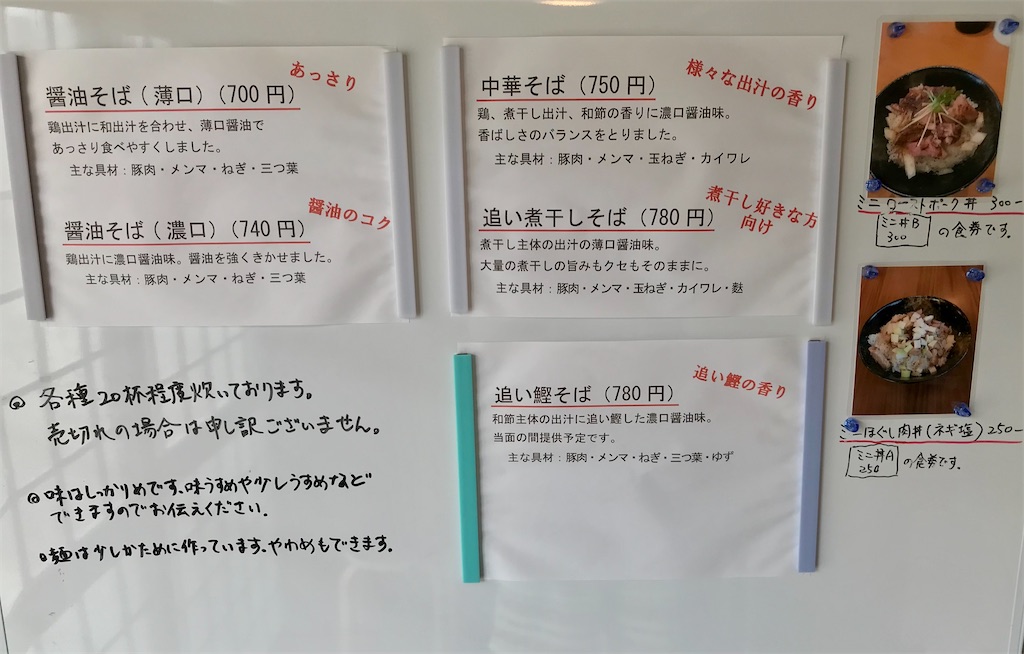 あっさり
醤油そば(薄口)(700円)
鶏出汁に和出汁を合わせ、薄口醤油で
あっさり食べやすくしました。
主な具材:豚肉・メンマ・ねぎ・三つ葉
醤油のコク
醤油そば(濃口)(740円)
鶏出汁に濃口醤油味。醤油を強くきかせました。
主な具材:豚肉・メンマ・ねぎ・三つ葉
様々な出汁の香り
中華そば(750円)
鶏、煮干し出汁、和節の香りに濃口醤油味。
香ばしさのバランスをとりました。
主な具材:豚肉・メンマ・玉ねぎ・カイワレ
煮干し好きな方
向け
追い煮干しそば(780円)
煮干し主体の出汁の薄口醤油味。
大量の煮干しの旨みもクセもそのままに。
主な具材:豚肉・メンマ・玉ねぎ・カイワレ・麩
追い鰹の香り
追い鰹そば(780円)
和節主体の出汁に追い鰹した濃口醤油味。
当面の間提供予定です。
主な具材:豚肉・メンマ・ねぎ・三つ葉・ゆず
◎各種20杯程度炊いております。
売切れの場合は申し訳ございません。
◎味はしっかりめです、味うすめや少しうすめなど
できますのでお伝えください。
◎麺は少しかために作っています、やわめもできます。
ミニローストポーク丼 300-
ミニ丼B
300
の食券です。
ミニほぐし肉丼(ネギ塩)250-
ミニ丼A
250
の食券です。